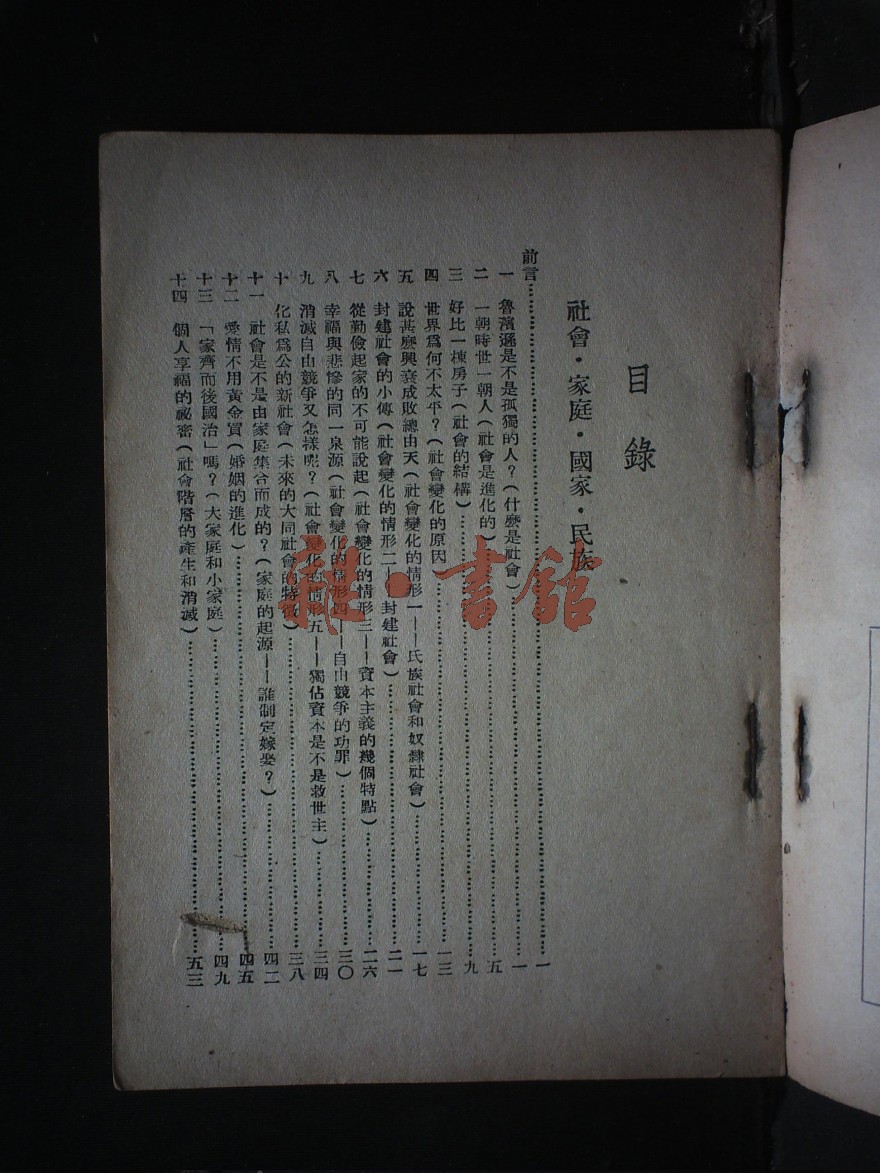 目錄
社會·家庭·國家·民族
前言……一
一 魯濱遜是不是孤獨的人?(什麼是社會)……一
二 一朝時世一朝人(社會是進化的)……五
三 好比一棟房子(社會的結構)……九
四 世界爲何不太平?(社會變化的原因……一三
五 說甚麽興衰成敗總由天(社會變化的情形一——氏族社會和奴隸社會)……一七
六 封建社會的小傳(社會變化的情形二——封建社會)……二一
七 從勤儉起家的不可能說起(社會變化的情形三——資本主義的幾個特點)……二六
八 幸福與悲慘的同一泉源(社會變化的情形四——自由競爭的功罪)……三〇
九 消滅自由競爭又怎樣呢?(社會變化的情形五——獨佔資本是不是救世主)……三四
十 化私爲公的新社會(未來的大同社會的特徵)……三八
十一 社會是不是由家庭集合而成的?(家庭的起源——誰制定嫁娶?)……四二
十二 愛情不用黃金買(婚姻的進化)……四五
十三 「家齊而後國治」嗎?(大家庭和小家庭)……四九
十四 個人享福的祕密(社會階層的產生和消滅)……五三
雅·書館